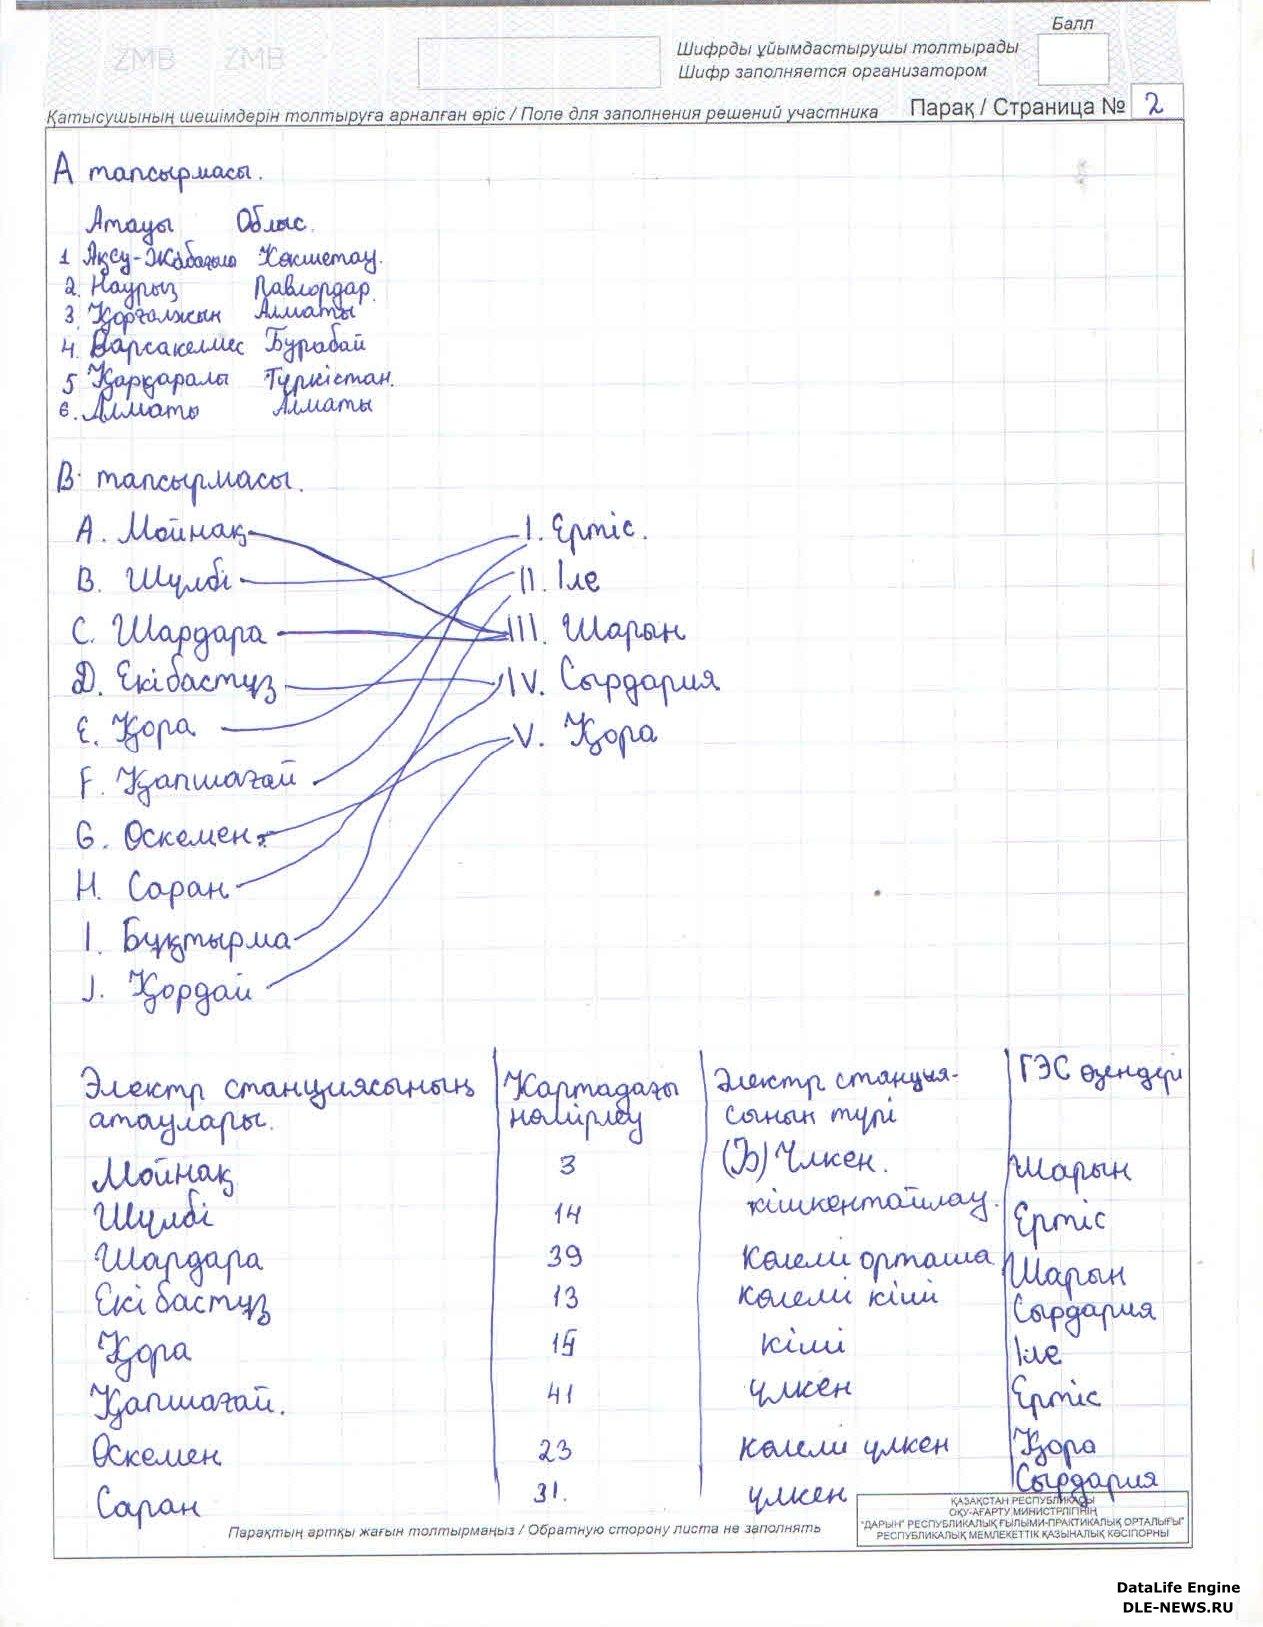 ZMB ZMB
Балл
Шифрды ұйымдастырушы толтырады
Шифр заполняется организатором
Қатысушының шешімдерін толтыруға арналған өріс / Поле для заполнения решений участника Парақ / Страница № 2
А тапсырмасы.
Атауы Облыс.
1 Ақсу-Жабағылы Көкшетау.
2. Наурыз Павлордар.
3. Қорғалжын Алматы
4. Барсакелмес Бурабай
5 Қарқаралы Түркістан.
6. Алматы Алматы
В тапсырмасы.
А. Мойнақ I. Ертіс.
В. Шүлбі II. Іле
С. Шардара III. Шарын
D. Екібастұз IV. Сырдария
Е. Қора V. Қора
F. Қапшағай
G. Өскемен.
H. Саран
I. Бұқтырма
J. Қордай
Электр станциясының Картадағы Электр станция- ГЭС өзендері
атаулары. нөмірлеу сының түрі
Мойнақ 3 (Ұ) Үлкен. Шарын
Шүлбі 14 кішкентайлау. Ертіс
Шардара 39 көлемі орташа Шарын
Екібастұз 13 көлемі кіші Сырдария
Қора кіші Іле
Қапшағай. 41 үлкен Ертіс
Өскемен 23 көлемі үлкен Қора
Саран 31. үлкен Сырдария
Парақтың артқы жағын толтырмаңыз / Обратную сторону листа не заполнять
ҚАЗАҚСТАН РЕСПУБЛИКАСЫ
ОҚУ-АҒАРТУ МИНИСТРЛІГІНІҢ
"ДАРЫН" РЕСПУБЛИКАЛЫҚ ҒЫЛЫМИ-ПРАКТИКАЛЫҚ ОРТАЛЫҒЫ"
РЕСПУБЛИКАЛЫҚ МЕМЛЕКЕТТІК ҚАЗЫНАЛЫҚ КӘСІПОРНЫ
DataLife Engine
DLE-NEWS.RU